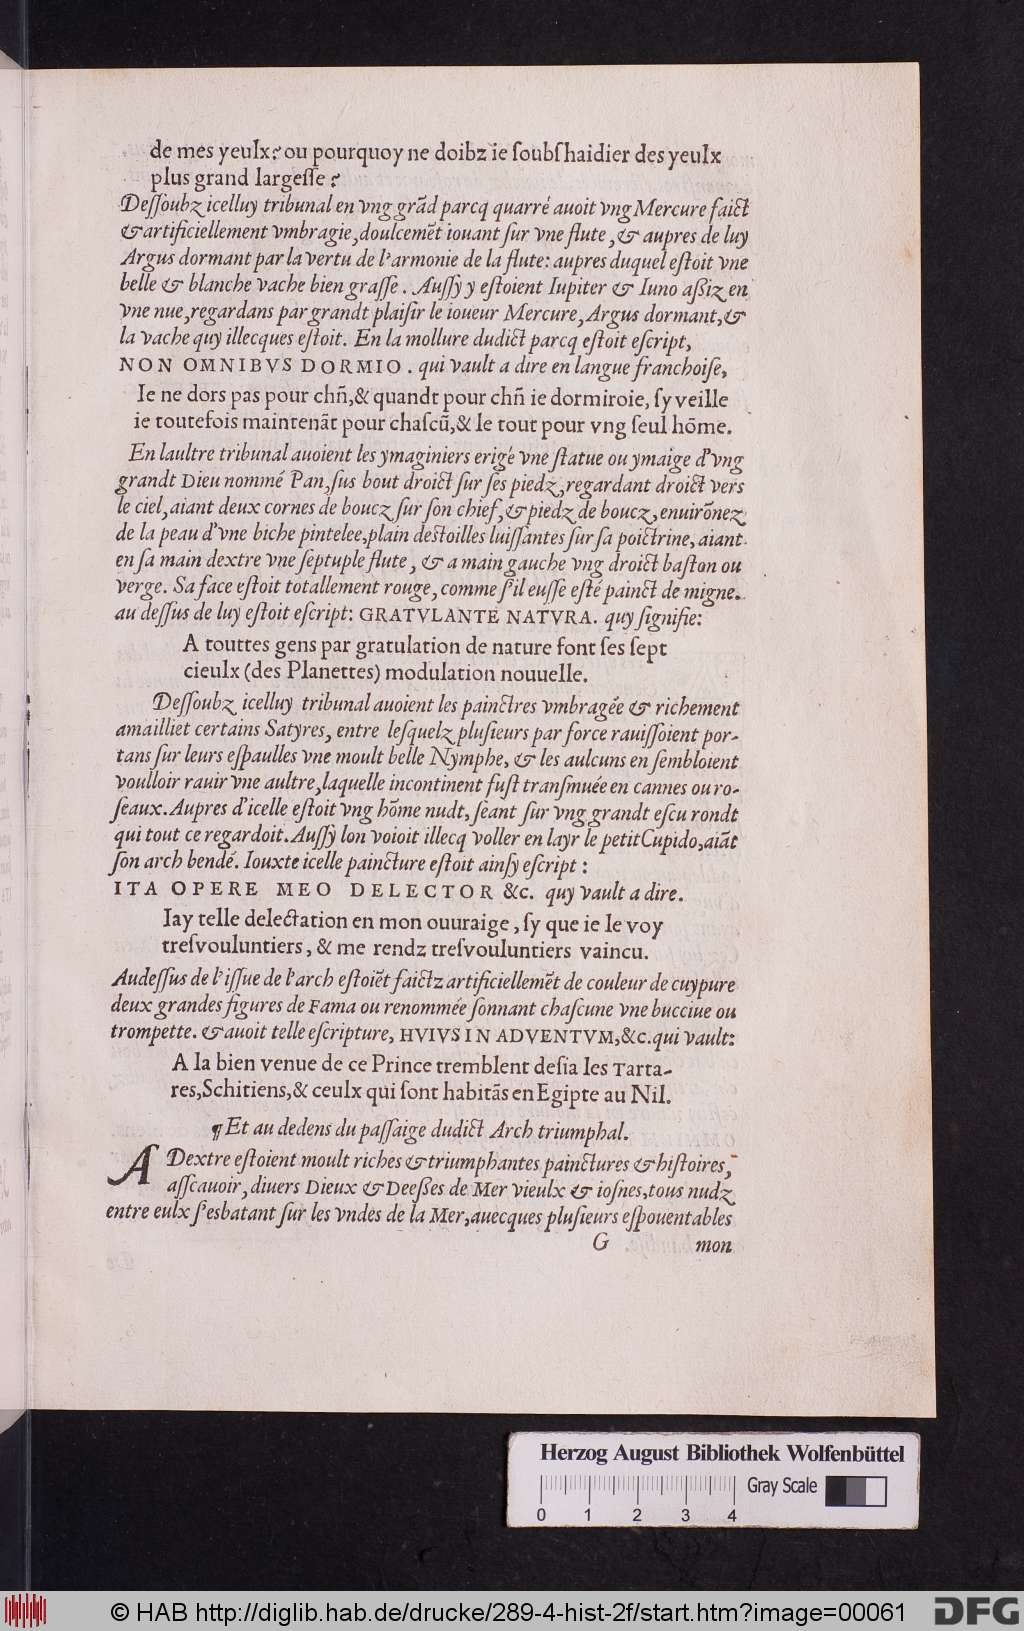 de mes yeulx? ou pourquoy ne doibz ie ſoubſhaidier des yeulx
plus grand largeſſe?
Deſſoubz icelluy tribunal en vng grãd parcq quarré auoit vng Mercure faict
& artificiellement vmbragie, doulcemẽt iouant ſur vne flute, & aupres de luy
Argus dormant par la vertu de l'armonie de la flute: aupres duquel eſtoit vne
belle & blanche vache bien graſſe. Auſſy y eſtoient Iupiter & Iuno aßiz en
vne nue, regardans par grandt plaiſir le ioueur Mercure, Argus dormant, &
la vache quy illecques eſtoit. En la mollure dudict parcq eſtoit eſcript,
NON OMNIBVS DORMIO. qui vault a dire en langue franchoiſe,
Ie ne dors pas pour chñ, & quandt pour chñ ie dormiroie, ſy veille
ie toutefois maintenãt pour chaſcũ, & le tout pour vng ſeul hõme.
En laultre tribunal auoient les ymaginiers erigé vne ſtatue ou ymaige d'vng
grandt Dieu nommé Pan, ſus bout droict ſur ſes piedz, regardant droict vers
le ciel, aiant deux cornes de boucz ſur ſon chief, & piedz de boucz, enuirõnez
de la peau d'vne biche pintelee, plain deſtoilles luiſſantes ſur ſa poictrine, aiant
en ſa main dextre vne ſeptuple flute, & a main gauche vng droict baſton ou
verge. Sa face eſtoit totallement rouge, comme ſ'il euſſe eſté painct de migne.
au deſſus de luy eſtoit eſcript: GRATVLANTE NATVRA. quy ſignifie:
A touttes gens par gratulation de nature font ſes ſept
cieulx (des Planettes) modulation nouuelle.
Deſſoubz icelluy tribunal auoient les painctres vmbragée & richement
amailliet certains Satyres, entre leſquelz pluſieurs par force rauiſſoient por-
tans ſur leurs eſpaulles vne moult belle Nymphe, & les aulcuns en ſembloient
voulloir rauir vne aultre, laquelle incontinent fuſt tranſmuée en cannes ou ro-
ſeaux. Aupres d'icelle eſtoit vng hõme nudt, ſeant ſur vng grandt eſcu rondt
qui tout ce regardoit. Auſſy lon voioit illecq voller en layr le petit Cupido, aiãt
ſon arch bendé. Iouxte icelle paincture eſtoit ainſy eſcript:
ITA OPERE MEO DELECTOR &c. quy vault a dire.
Iay telle delectation en mon ouuraige, ſy que ie le voy
treſvouluntiers, & me rendz treſvouluntiers vaincu.
Audeſſus de l'iſſue de l'arch eſtoiẽt faictz artificiellemẽt de couleur de cuypure
deux grandes figures de Fama ou renommée ſonnant chaſcune vne bucciue ou
trompette. & auoit telle eſcripture, HVIVS IN ADVENTVM, &c. qui vault:
A la bien venue de ce Prince tremblent deſia les Tarta-
res, Schitiens, & ceulx qui ſont habitãs en Egipte au Nil.
¶ Et au dedens du paſſaige dudict Arch triumphal.
A Dextre eſtoient moult riches & triumphantes painctures & hiſtoires,
aſſcauoir, diuers Dieux & Deeßes de Mer vieulx & ioſnes, tous nudz
entre eulx ſ'esbatant ſur les vndes de la Mer, auecques pluſieurs eſpouentables
G mon
Herzog August Bibliothek Wolfenbüttel
Gray Scale
0 1 2 3 4
© HAB http://diglib.hab.de/drucke/289-4-hist-2f/start.htm?image=00061
DFG